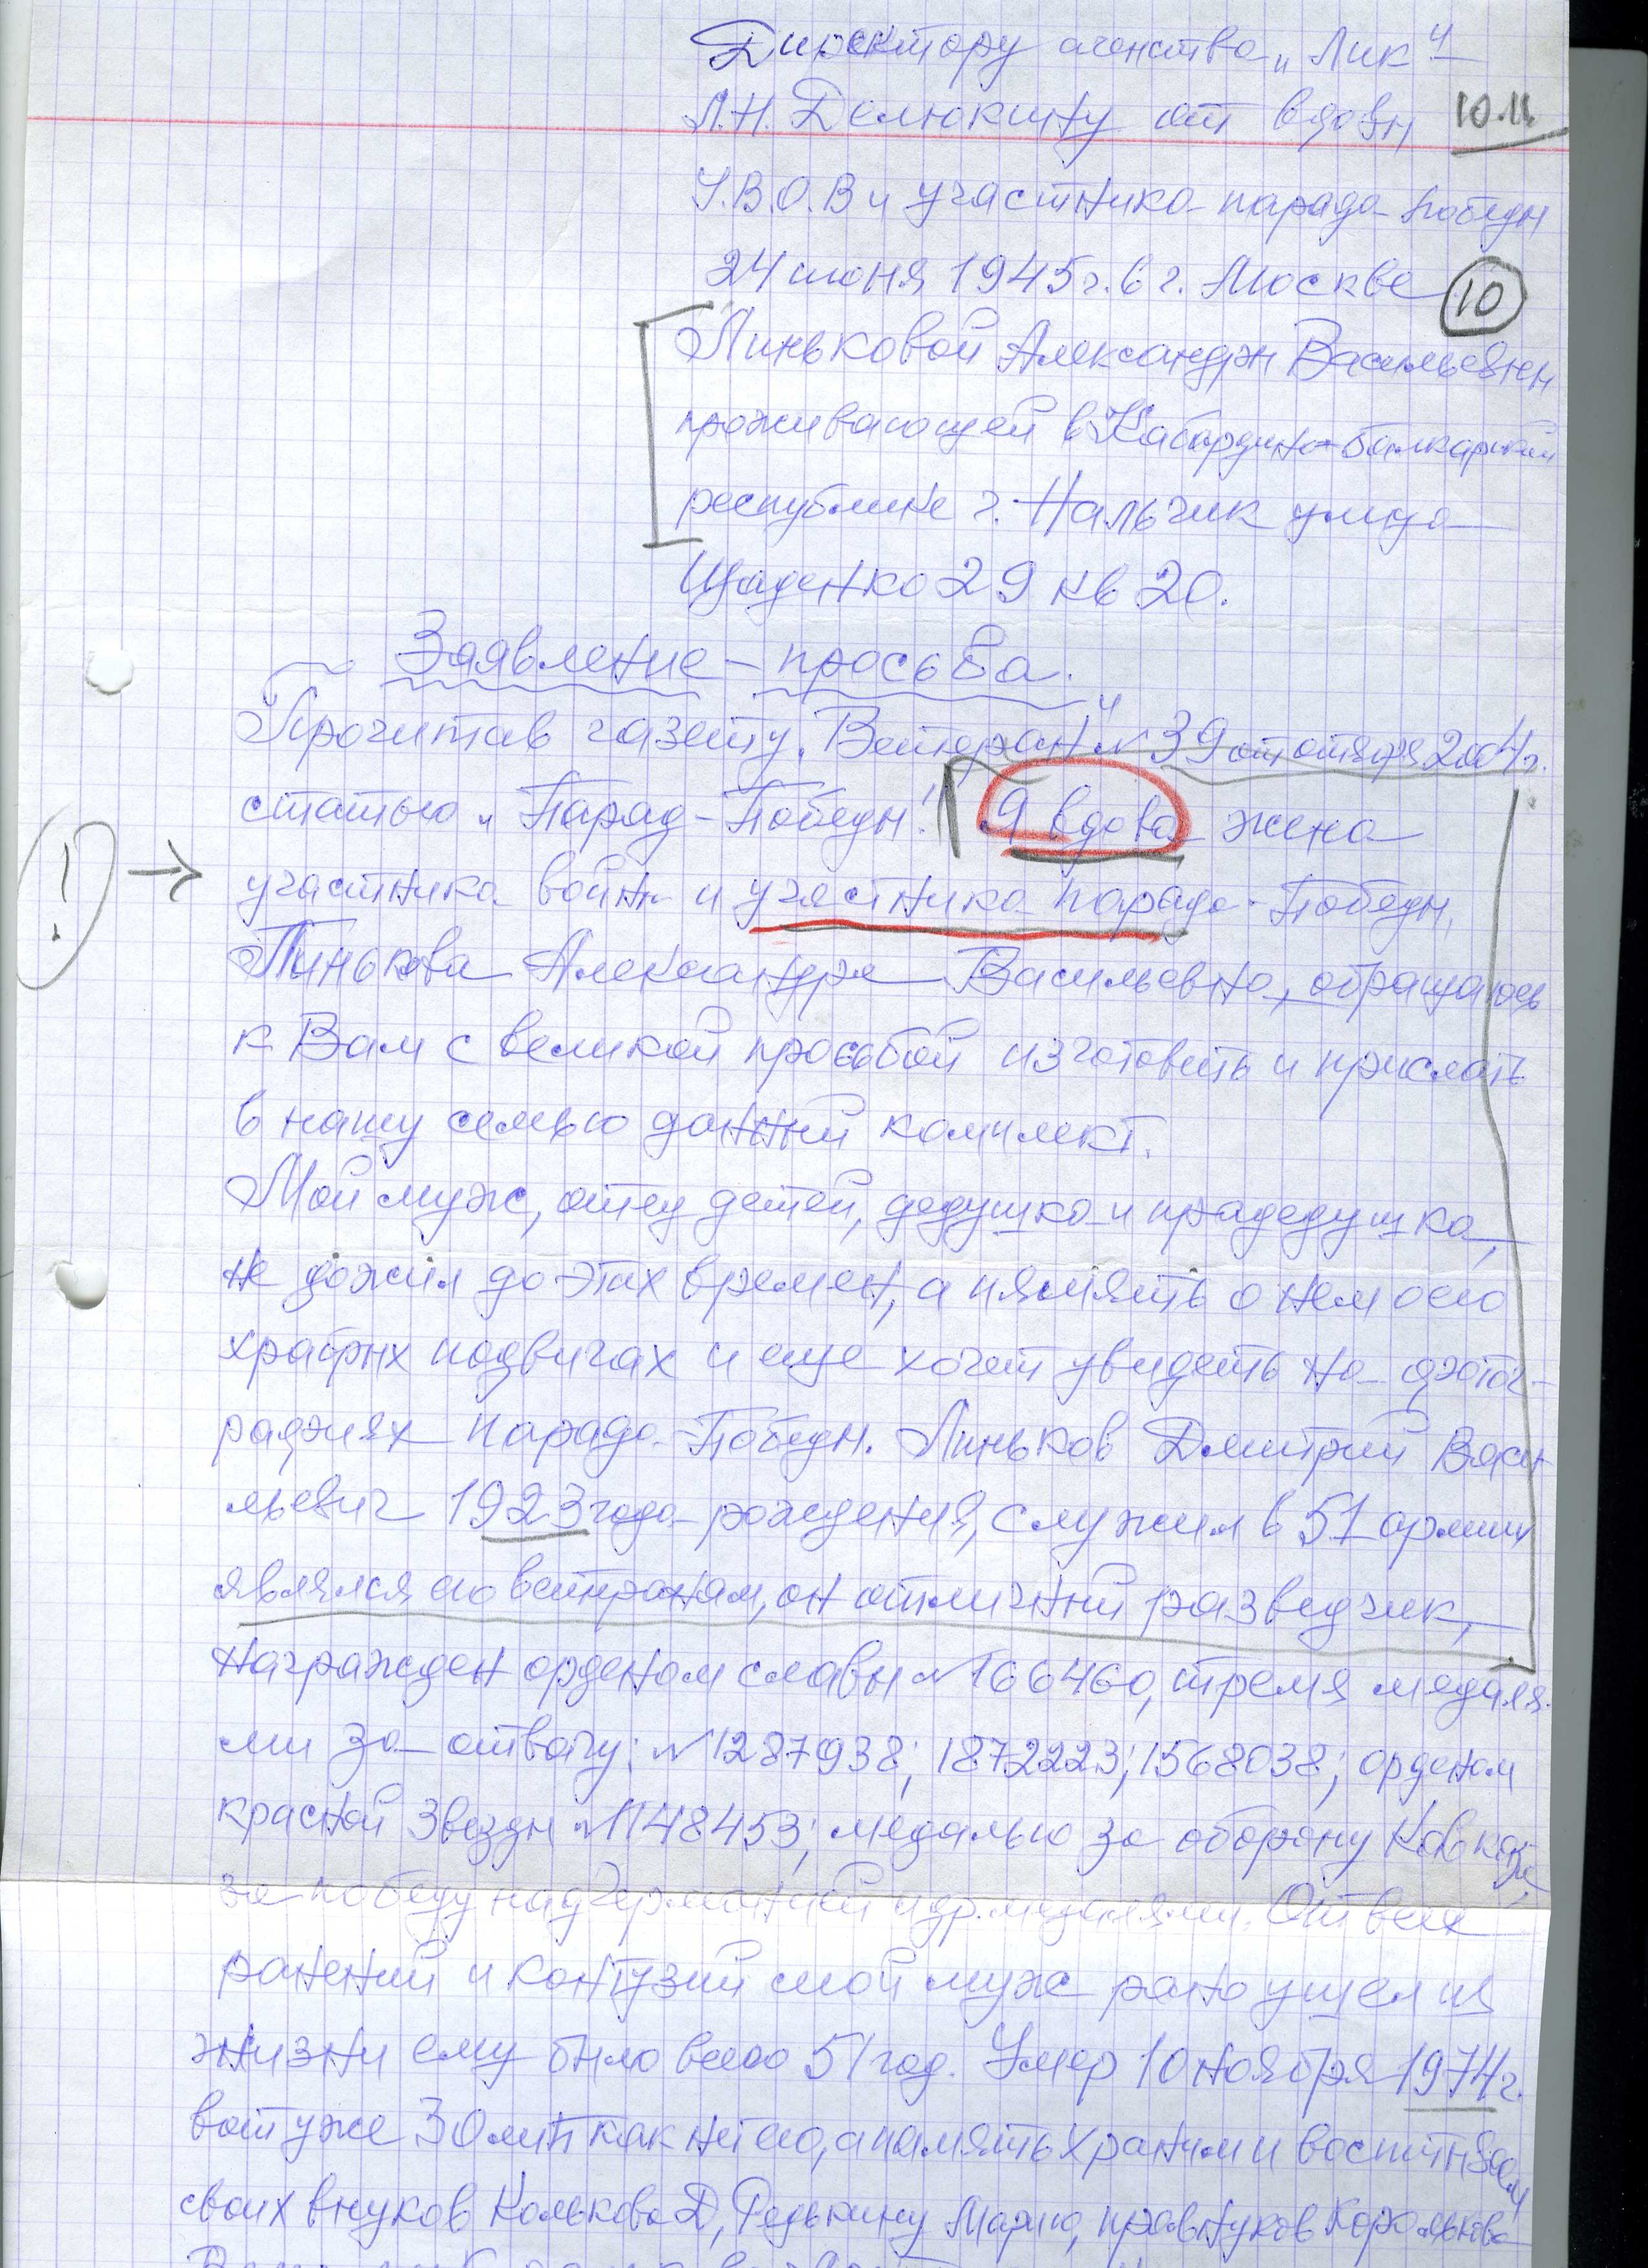 Директору агенства "Лик"
Л.Н. Делюкину от вдовы
10.11
У.В.О.В и участника парада Победы
24 июня 1945 г. в г. Москве
10
Линьковой Александры Васильевны
проживающей в Кабардино-Балкарской
республике г. Нальчик улица
Щаденко 29 кв 20.
Заявление - просьба.
Прочитав газету "Ветеран" № 39 от 2004 г.
статью "Парад-Победы!" Я вдова жена
участника войны и участника парада-Победы,
!
Линькова Александра Васильевна, обращаюсь
к Вам с великой просьбой изготовить и прислать
в нашу семью данный комплект.
Мой муж, отец детей, дедушка и прадедушка,
не дожил до этих времен, а память о нем о его
храбрых подвигах и еще хочет увидеть на фотог-
рафиях парада-Победы. Линьков Дмитрий Васи-
льевич 1923 года рождения, служил в 51 армии
являлся ее ветераном, он отличный разведчик,
награжден орденом славы № 166460, тремя медаля-
ми за отвагу: № 1287938; 1872223; 1568038; орденом
красной Звезды № 1148453; медалью за оборону Кавказа,
за победу над германией и др. медалями. От всех
ранений и контузий мой муж рано ушел из
жизни ему было всего 51 год. Умер 10 ноября 1974 г.
вот уже 30 лет как нет его, а память храним и воспитываем
своих внуков Колькова Д, Редькину Марию, правнуков Королькова